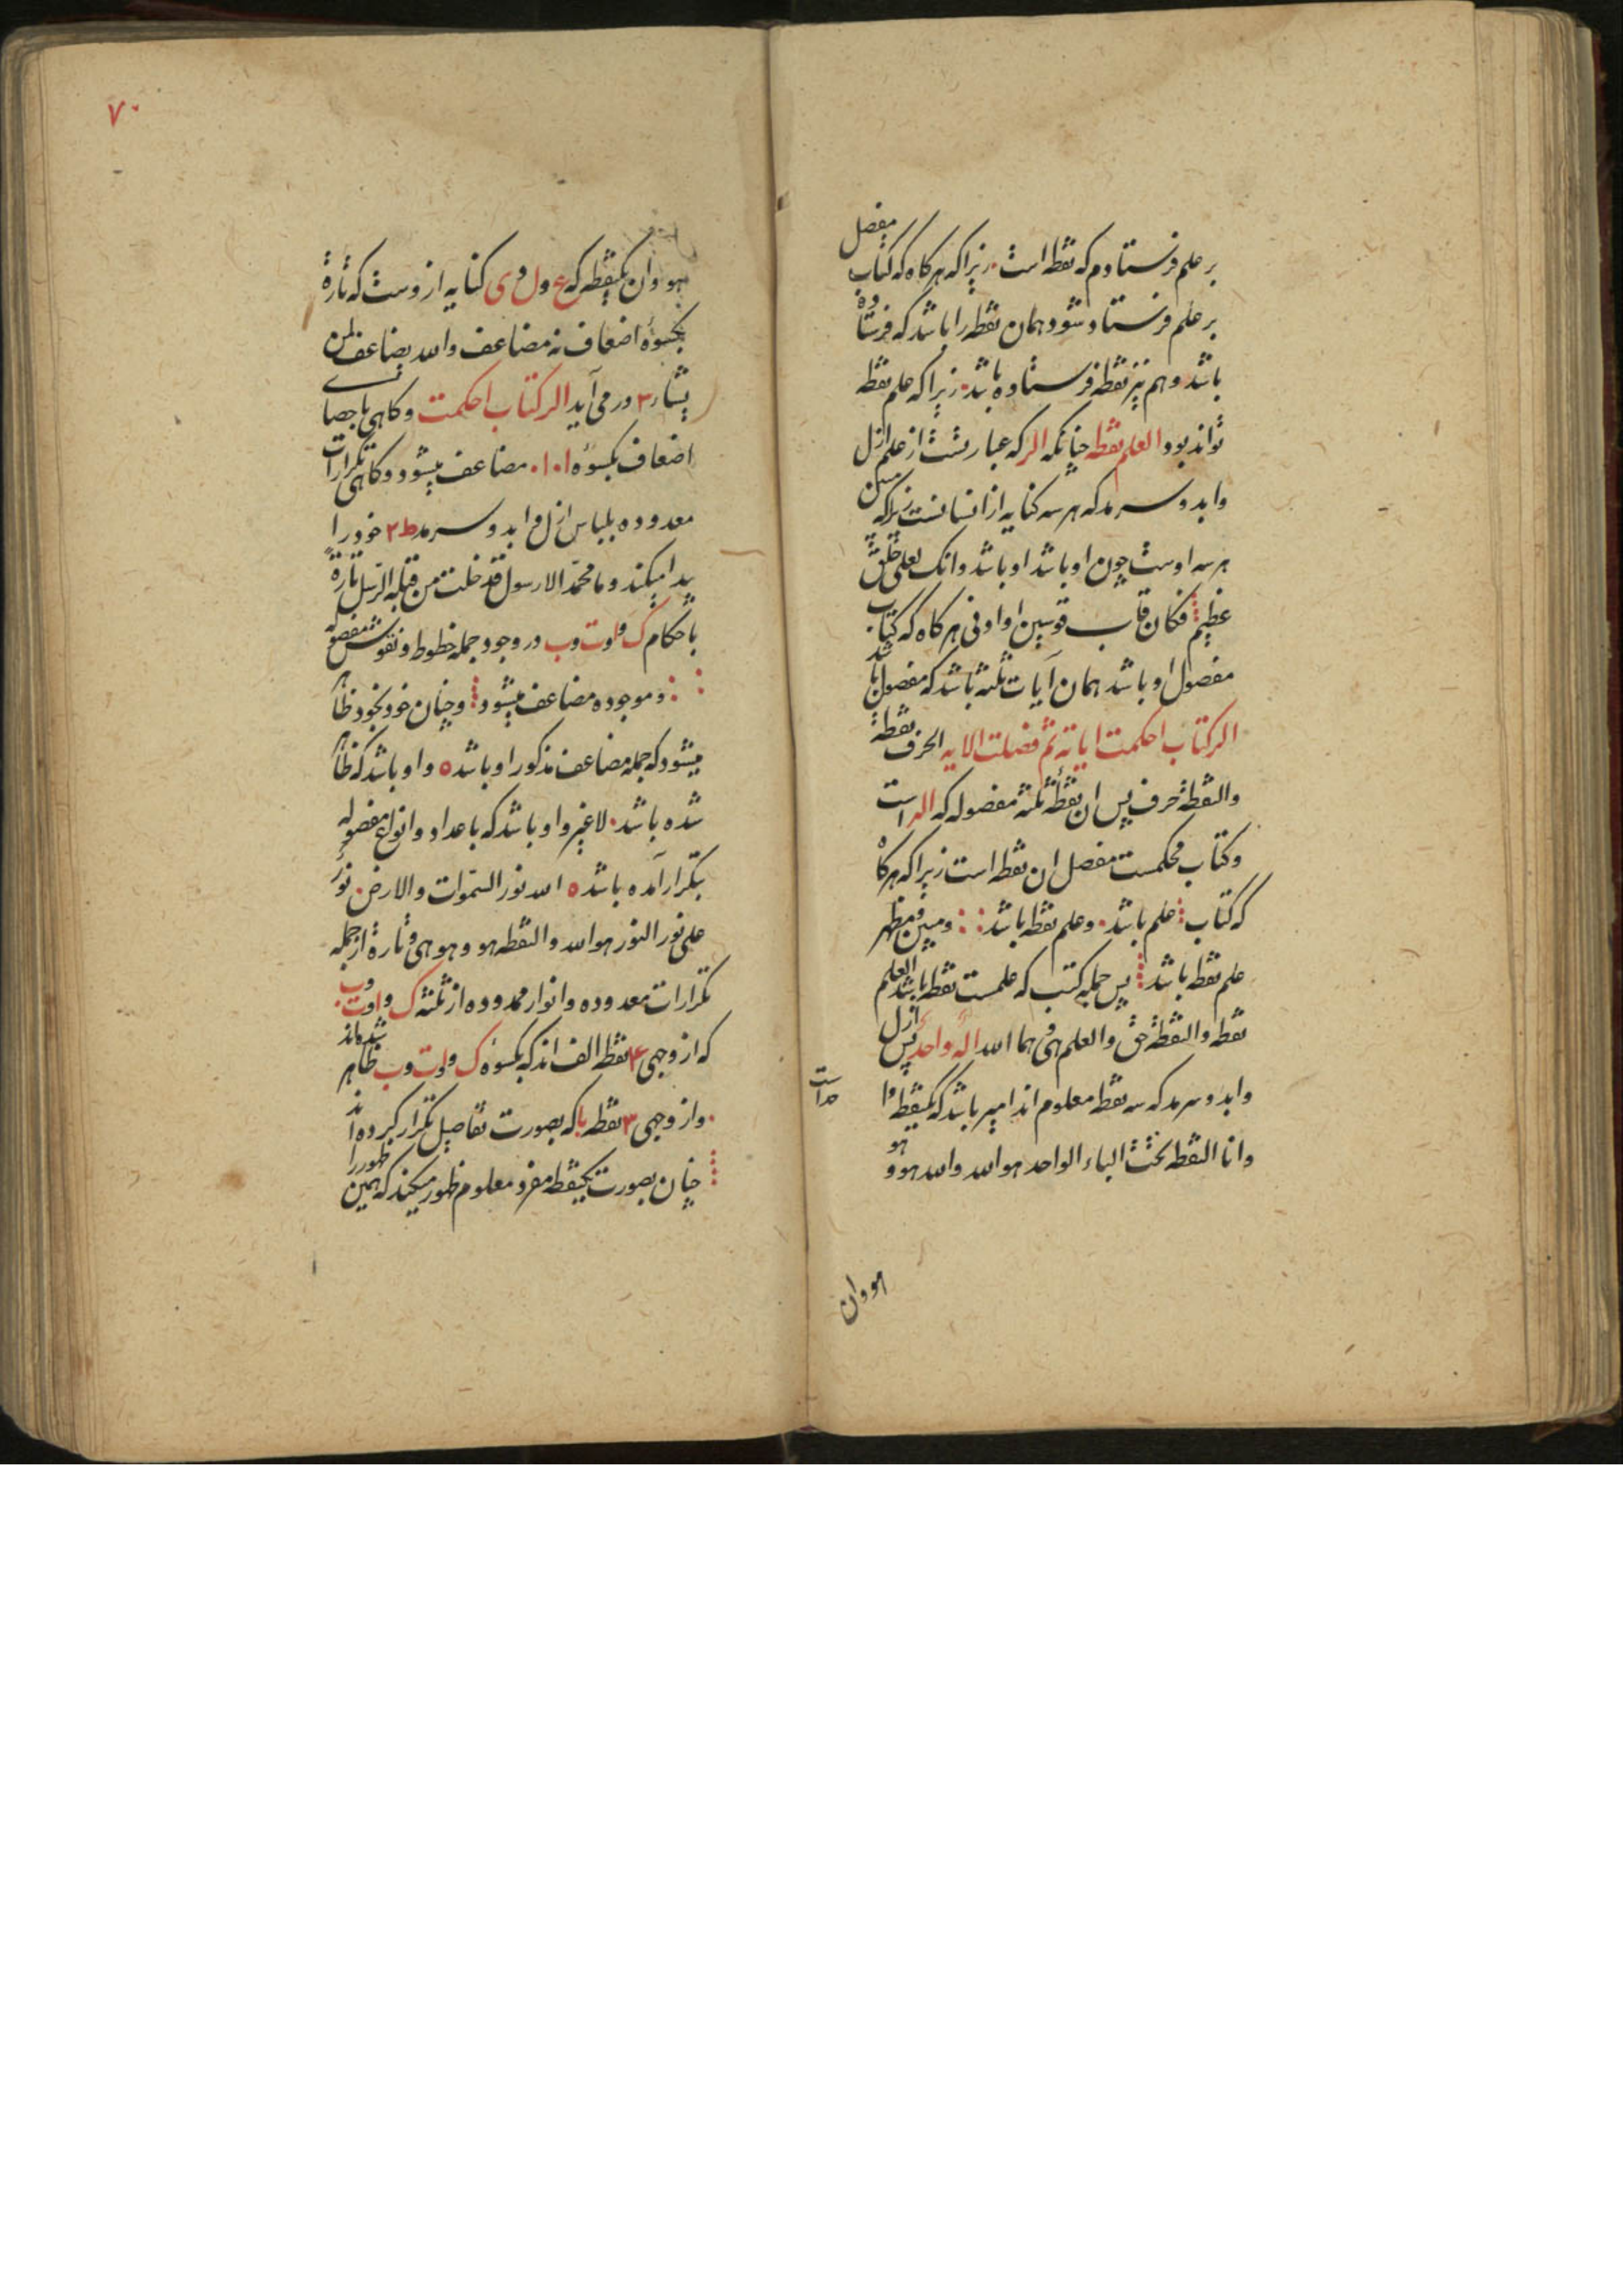 بر علم فرستادم که نقطه است. زیرا که هر کاه که کتاب مفصل
بر علم فرستاده شود همان نقطه را باشد که فرستاده
باشد وهم نیز نقطه فرستاده باشد. زیرا که علم نقطه
تواند بود العلم نقطه چنانکه الر که عبارتست از علم ازل
وابد و سرمد که هر سه کنایه از انسانست زیرا که
هر سه اوست چون او باشد او باشد وانک لعلی خلق
عظیم فکان قاب قوسین او ادنی هر کاه که کتاب
مفصول او باشد همان آیات ثلثه باشد که مفصول باشد
الر کتاب احکمت ایاته ثم فصلت الایه الحرف نقطة
والنقطة حرف پس ان نقطهٔ ثلثه مفصوله که الر است
وکتاب محکمست مفصل ان نقطه است زیرا که هر کاه
که کتاب علم باشد. وعلم نقطه باشد ومبین ومظهر
علم نقطه باشد پس جمله کتب که علمست نقطه باشد العلم
نقطه والنقطة حق والعلم هی هما الله اله واحد پس ازل
وابد و سرمد که سه نقطه معلوم اند امیر باشد که یکنقطه
است
وانا النقطه تحت الباء الواحد هو الله والله هو و هو
هو وان
۷۰
هو وان یکنقطه که ع ول وی کنایه ازوست که تارة
بکسوهٔ اضعاف نه مضاعف والله یضاعف لمن
یشاء ۳ در می آید الر کتاب احکمت وکاهی باحصای
اضعاف بکسوهٔ ۱۰۱۰ مضاعف میشود وکاهی تکرارات
معدوده بلباس ازل وابد و سرمد ط۲ خود را
پیدا میکند وما محمد الا رسول قد خلت من قبله الرسل تارة
باحکام ک ولوت وب در وجود جمله خطوط ونقوش مفصوله
وموجوده مضاعف میشود وچنان خود بخود ظاهر
میشود که جمله مضاعف مذکور او باشد ه واو باشد که ظاهر
شده باشد. لا غیر واو باشد که باعداد وانواع مفصوله
بتکرار آمده باشد ه الله نور السموات والارض. نور
علی نور النور هو الله والنقطه هو وهو هی وتارة از جمله
تکرارات معدوده وانوار محدوده از ثلثه ک ولوت وب.
که از وجهی ۴ نقطه الف اند که بکسوه ک ولوت وب ظاهر شده اند
. واز وجهی ۳ نقطه با که بصورت تفاصیل تکرار کرده اند
چنان بصورت یکنقطه مفرد معلوم ظهور میکند که همین ظهور را